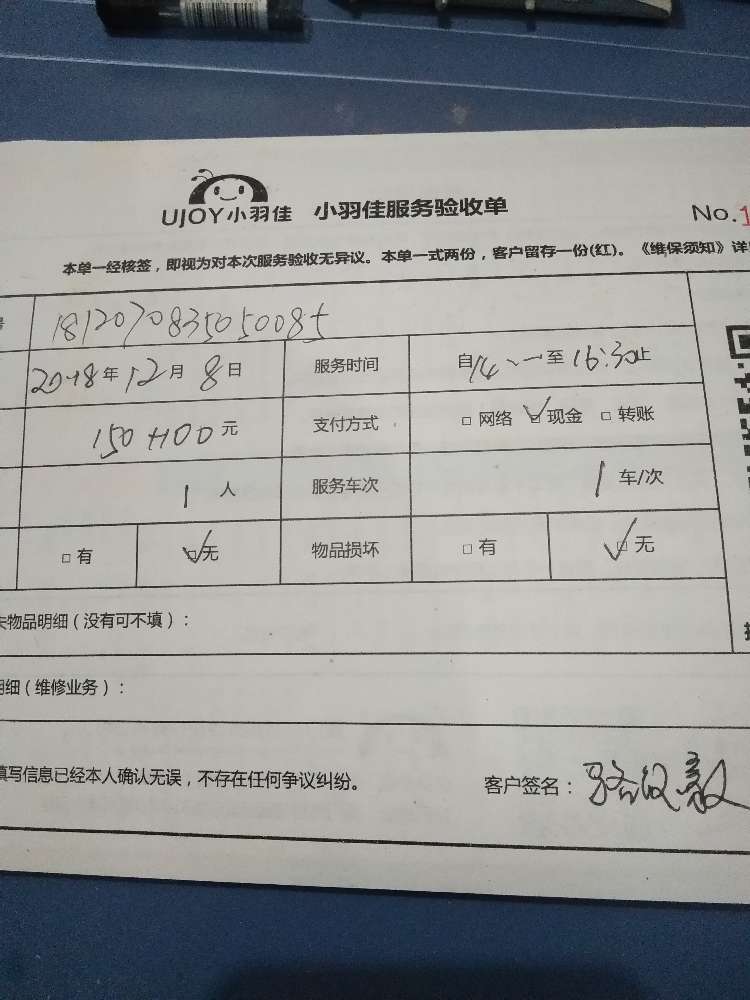 UJOY小羽佳 小羽佳服务验收单
No.1
本单一经核签，即视为对本次服务验收无异议。本单一式两份，客户留存一份(红)。《维保须知》详
号 1812070835050085
2018年12月8日 服务时间 自14:一至16:30止
150+100元 支付方式 □网络 ☑现金 □转账
1人 服务车次 1车/次
□有 ☑无 物品损坏 □有 ☑无
失物品明细（没有可不填）：
明细（维修业务）：
填写信息已经本人确认无误，不存在任何争议纠纷。 客户签名：